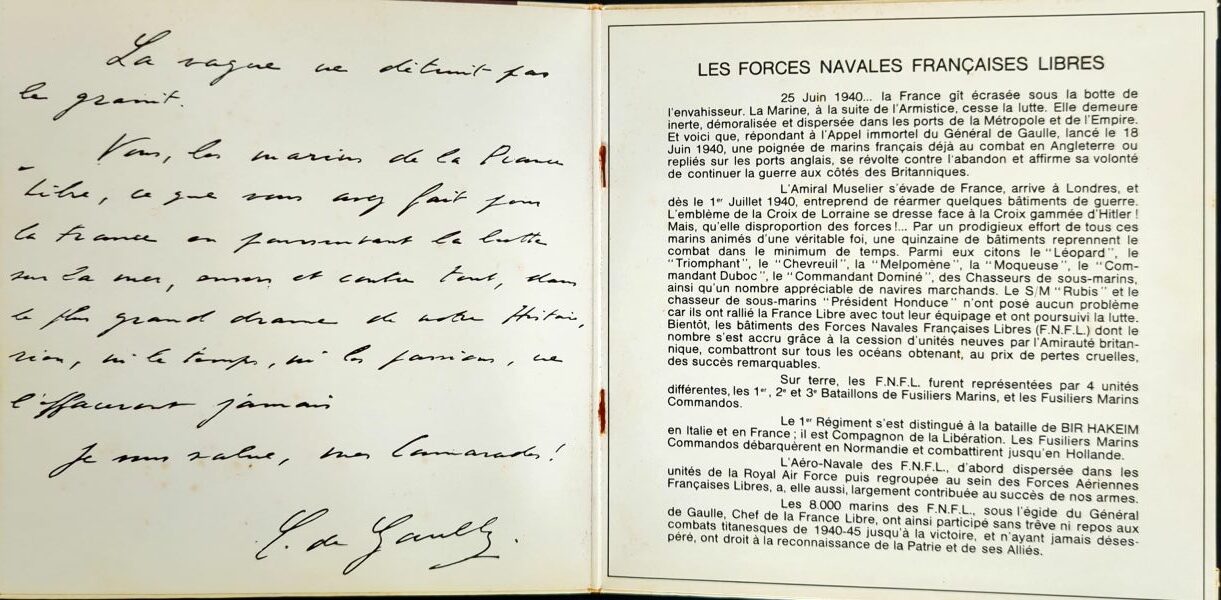 La vague ne détruit pas
le granit.
Vous, les marins de la France
Libre, ce que vous avez fait pour
la France en poursuivant la lutte
sur la mer, envers et contre tout, dans
le plus grand drame de notre Histoire,
rien, ni le temps, ni les passions, ne
l'effaceront jamais
Je vous salue, mes Camarades!
C. de Gaulle.
LES FORCES NAVALES FRANÇAISES LIBRES
25 Juin 1940... la France gît écrasée sous la botte de
l'envahisseur. La Marine, à la suite de l'Armistice, cesse la lutte. Elle demeure
inerte, démoralisée et dispersée dans les ports de la Métropole et de l'Empire.
Et voici que, répondant à l'Appel immortel du Général de Gaulle, lancé le 18
Juin 1940, une poignée de marins français déjà au combat en Angleterre ou
repliés sur les ports anglais, se révolte contre l'abandon et affirme sa volonté
de continuer la guerre aux côtés des Britanniques.
L'Amiral Muselier s'évade de France, arrive à Londres, et
dès le 1er Juillet 1940, entreprend de réarmer quelques bâtiments de guerre.
L'emblème de la Croix de Lorraine se dresse face à la Croix gammée d'Hitler !
Mais, qu'elle disproportion des forces !... Par un prodigieux effort de tous ces
marins animés d'une véritable foi, une quinzaine de bâtiments reprennent le
combat dans le minimum de temps. Parmi eux citons le "Léopard", le
"Triomphant", le "Chevreuil", la "Melpomène", la "Moqueuse", le "Com-
mandant Duboc", le "Commandant Dominé", des Chasseurs de sous-marins,
ainsi qu'un nombre appréciable de navires marchands. Le S/M "Rubis" et le
chasseur de sous-marins "Président Honduce" n'ont posé aucun problème
car ils ont rallié la France Libre avec tout leur équipage et ont poursuivi la lutte.
Bientôt, les bâtiments des Forces Navales Françaises Libres (F.N.F.L.) dont le
nombre s'est accru grâce à la cession d'unités neuves par l'Amirauté britan-
nique, combattront sur tous les océans obtenant, au prix de pertes cruelles,
des succès remarquables.
Sur terre, les F.N.F.L. furent représentées par 4 unités
différentes, les 1er, 2e et 3e Bataillons de Fusiliers Marins, et les Fusiliers Marins
Commandos.
Le 1er Régiment s'est distingué à la bataille de BIR HAKEIM
en Italie et en France ; il est Compagnon de la Libération. Les Fusiliers Marins
Commandos débarquèrent en Normandie et combattirent jusqu'en Hollande.
L'Aéro-Navale des F.N.F.L., d'abord dispersée dans les
unités de la Royal Air Force puis regroupée au sein des Forces Aériennes
Françaises Libres, a, elle aussi, largement contribuée au succès de nos armes.
Les 8.000 marins des F.N.F.L., sous l'égide du Général
de Gaulle, Chef de la France Libre, ont ainsi participé sans trêve ni repos aux
combats titanesques de 1940-45 jusqu'à la victoire, et n'ayant jamais déses-
péré, ont droit à la reconnaissance de la Patrie et de ses Alliés.